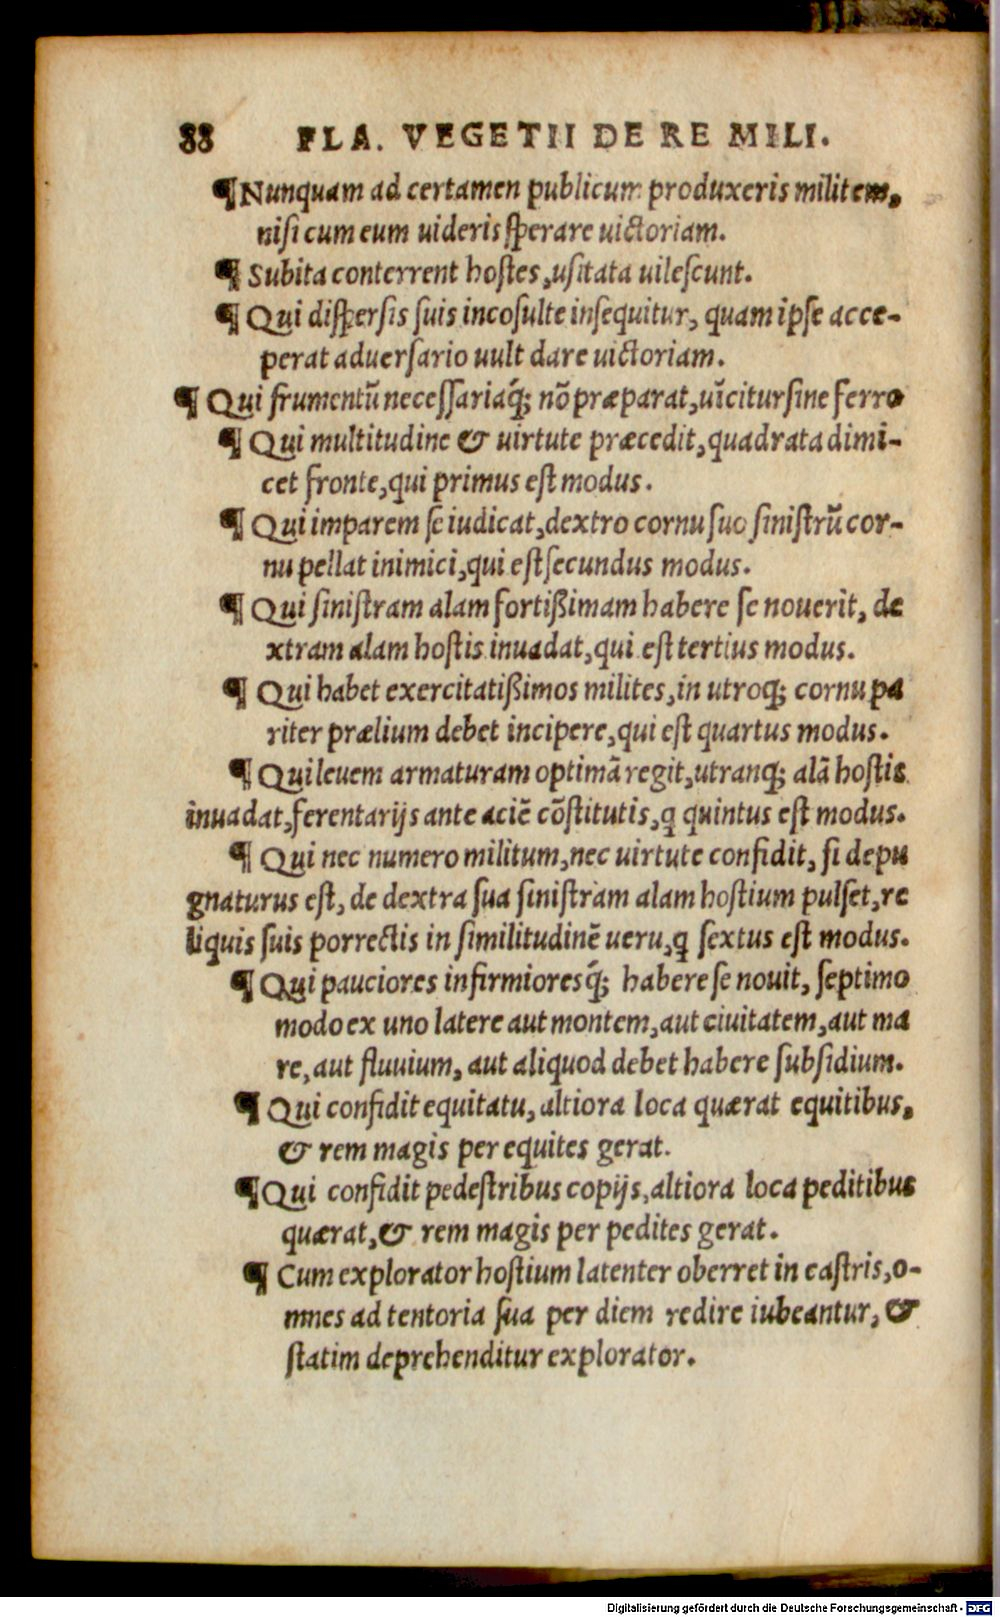 88 FLA. VEGETII DE RE MILI.
¶Nunquam ad certamen publicum produxeris militem,
niſi cum eum uideris ſperare uictoriam.
¶ Subita conterrent hoſtes, uſitata uileſcunt.
¶ Qui diſperſis ſuis incoſulte inſequitur, quam ipſe acce-
perat aduerſario uult dare uictoriam.
¶ Qui frumentũ neceſſariaq́; nõ præparat, uĩcitur ſine ferro
¶ Qui multitudine & uirtute præcedit, quadrata dimi-
cet fronte, qui primus eſt modus.
¶ Qui imparem ſe iudicat, dextro cornu ſuo ſiniſtrũ cor-
nu pellat inimici, qui eſt ſecundus modus.
¶ Qui ſiniſtram alam fortißimam habere ſe nouerit, de
xtram alam hoſtis inuadat, qui eſt tertius modus.
¶ Qui habet exercitatißimos milites, in utroq; cornu pa
riter prælium debet incipere, qui eſt quartus modus.
¶ Qui leuem armaturam optimã regit, utranq; alã hoſtis
inuadat, ferentarijs ante aciẽ cõſtitutis, q quintus eſt modus.
¶ Qui nec numero militum, nec uirtute confidit, ſi depu
gnaturus eſt, de dextra ſua ſiniſtram alam hoſtium pulſet, re
liquis ſuis porrectis in ſimilitudinẽ ueru, q ſextus eſt modus.
¶ Qui pauciores infirmioresq́; habere ſe nouit, ſeptimo
modo ex uno latere aut montem, aut ciuitatem, aut ma
re, aut fluuium, aut aliquod debet habere ſubſidium.
¶ Qui confidit equitatu, altiora loca quærat equitibus,
& rem magis per equites gerat.
¶Qui confidit pedeſtribus copijs, altiora loca peditibus
quærat, & rem magis per pedites gerat.
¶ Cum explorator hoſtium latenter oberret in caſtris, o-
mnes ad tentoria ſua per diem redire iubeantur, &
ſtatim deprehenditur explorator.
Digitalisierung gefördert durch die Deutsche Forschungsgemeinschaft - DFG